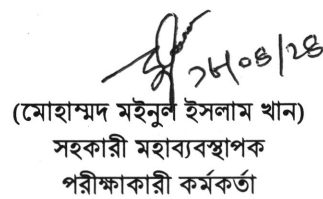 ২৮/০৪/২৪
(মোহাম্মদ মইনুল ইসলাম খান)
সহকারী মহাব্যবস্থাপক
পরীক্ষাকারী কর্মকর্তা